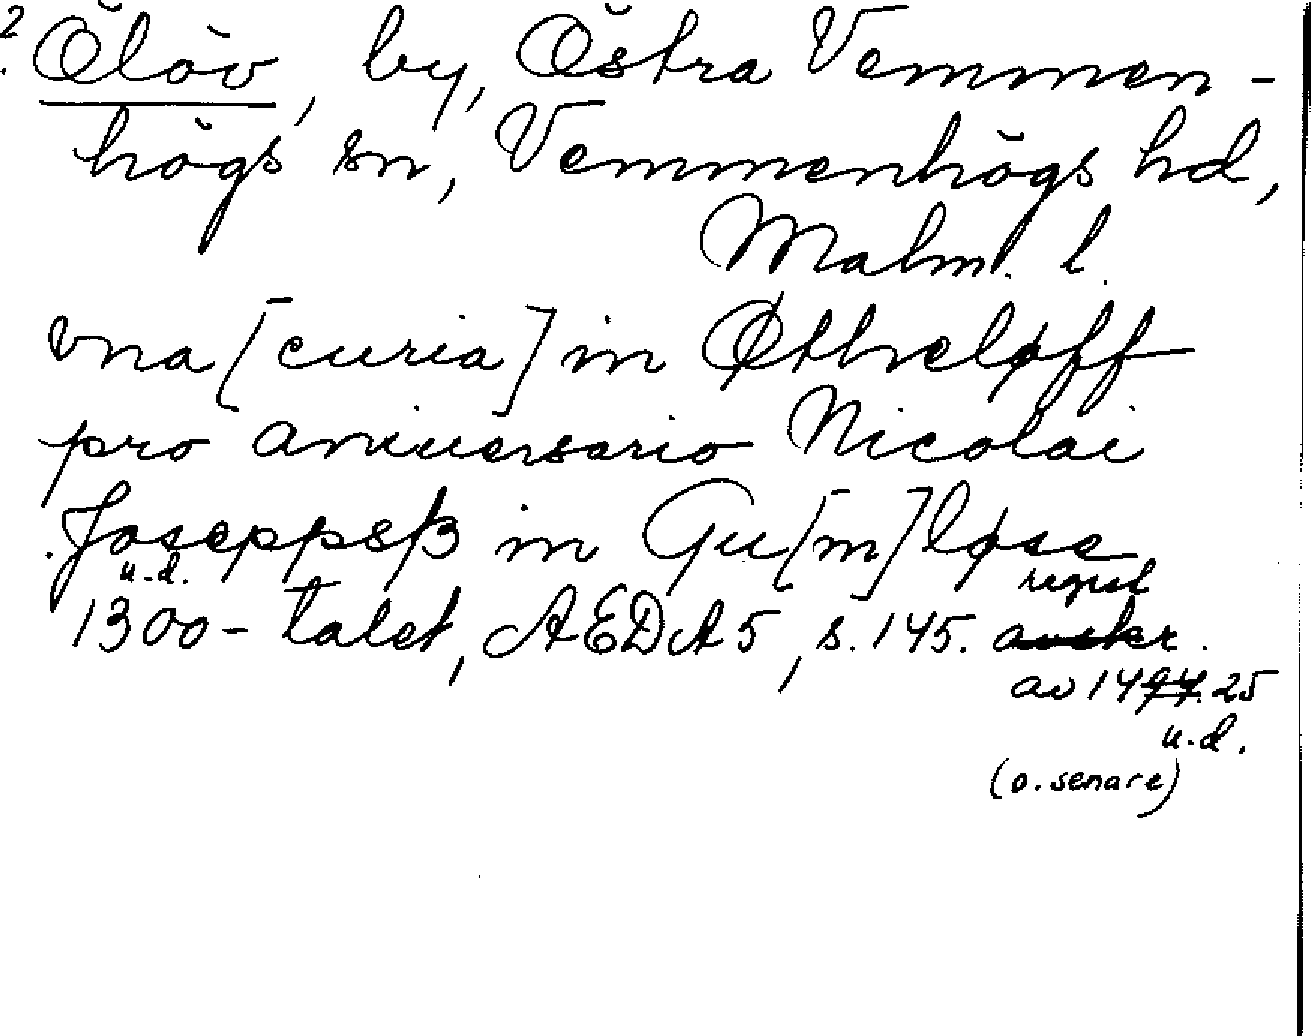 2. Ölöv, by, Östra Vemmen-
högs sn, Vemmenhögs hd,
Malm. l.
vna [curia] in Øthreløff
pro aniuersario Nicolai
Joseppsß in Gu[m]løse
u.d. regist
1300-talet, AEDA 5, s. 145. avskr.
av 1494. 25
u.d.
(o. senare)